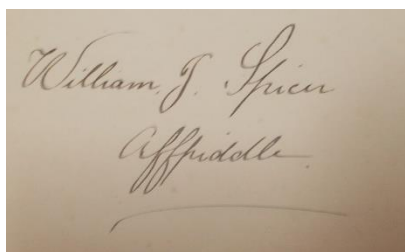 William. J. Spicer
Affpiddle.